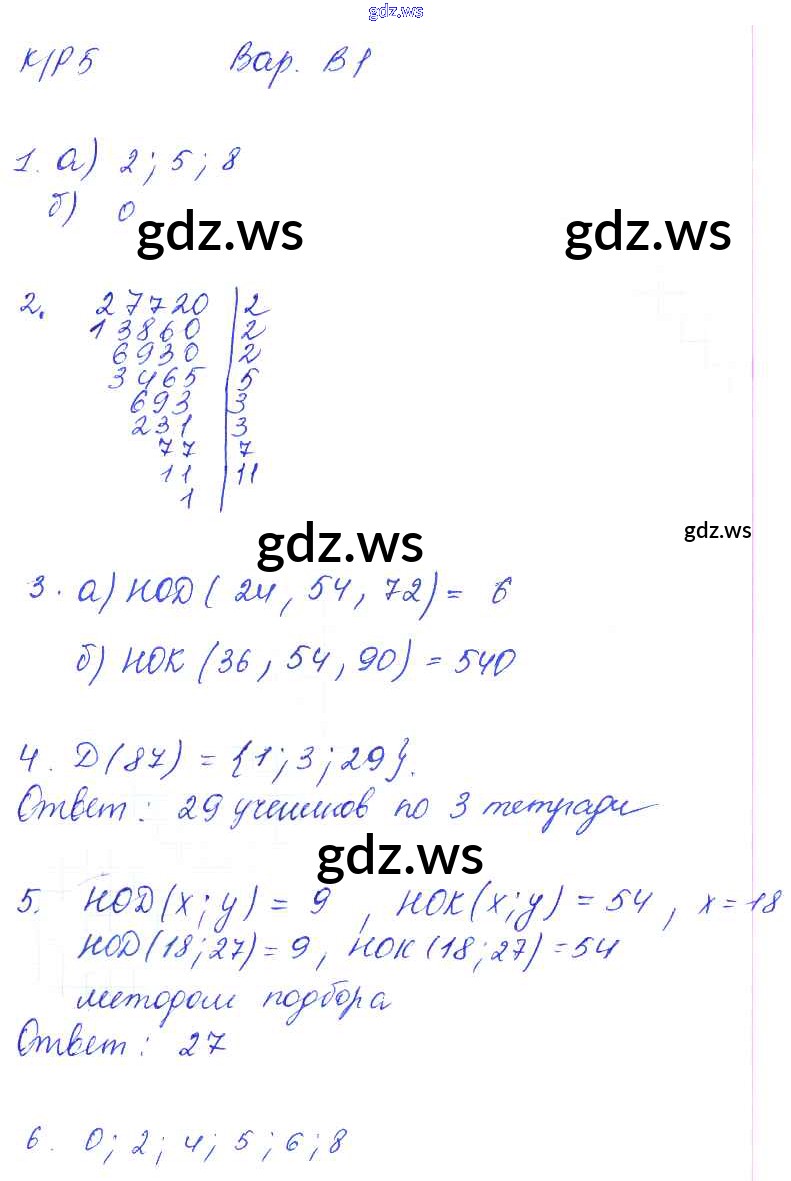 gdz.ws
К/Р 5 Вар. В1
1. а) 2; 5; 8
б) 0
gdz.ws gdz.ws
2. 27720 | 2
13860 | 2
6930 | 2
3465 | 5
693 | 3
231 | 3
77 | 7
11 | 11
1 |
gdz.ws gdz.ws
3. а) НОД (24, 54, 72) = 6
б) НОК (36, 54, 90) = 540
4. Д(87) = {1; 3; 29}.
Ответ: 29 учеников по 3 тетради
gdz.ws
5. НОД(x; y) = 9, НОК(x; y) = 54, x = 18
НОД(18; 27) = 9, НОК(18; 27) = 54
методом подбора
Ответ: 27
6. 0; 2; 4; 5; 6; 8